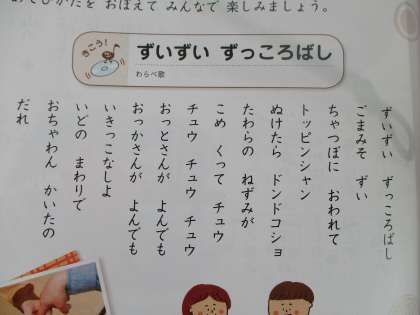 あそびかたを おぼえて みんなで 楽しみましょう。
きこう!
ずいずい ずっころばし
わらべ歌
ずいずい ずっころばし
ごまみそ ずい
ちゃつぼに おわれて
トッピンシャン
ぬけたら ドンドコショ
たわらの ねずみが
こめ くって チュウ
チュウ チュウ チュウ
おっとさんが よんでも
おっかさんが よんでも
いきっこなしよ
いどの まわりで
おちゃわん かいたの
だれ